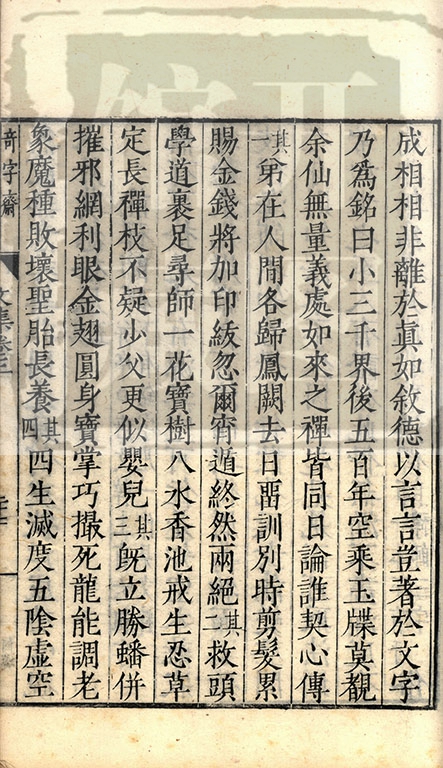 成相相非離於眞如敘德以言言豈著於文字
乃爲銘曰小三千界後五百年空乘玉牒莫覩
余仙無量義處如來之禪皆同日論誰契心傳
其一弟在人間各歸鳳闕去日畱訓別時剪髮累
賜金錢將加印紱忽爾宵遁終然兩絕其二救頭
學道裹足尋師一花寶樹八水香池戒生忍草
定長禪枝不疑少父更似嬰兒其三旣立勝蟠併
摧邪網利眼金翅圓身寶掌巧撮死龍能調老
象魔種敗壞聖胎長養其四四生滅度五陰虛空
奇字齋